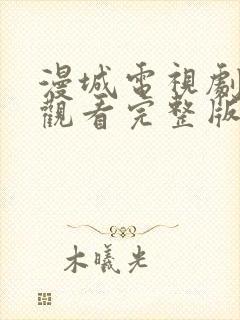 漫城電視劇
觀看完整版
木曦光